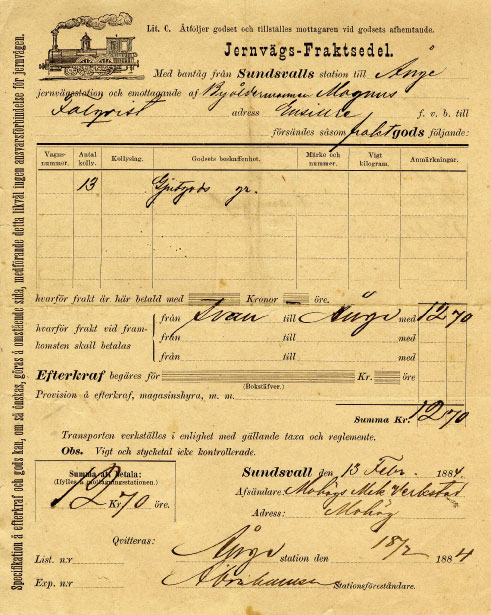 Lit. C. Åtföljer godset och tillställes mottagaren vid godsets afhemtande.
Jernvägs-Fraktsedel.
Med bantåg från Sundsvalls station till Ånge
jernvägsstation och emottagande af Magnus
adress f. v. b. till
försändes såsom fraktgods följande:
Vagns-nummer. Antal kolly. Kollyslag. Godsets beskaffenhet. Märke och nummer. Vigt kilogram. Anmärkningar.
13 Gjutgods gr.
hvarför frakt är här betald med Kronor öre.
från Svall till Ånge med 12 70
hvarför frakt vid fram-komsten skall betalas
från till med
från till med
Efterkraf begäres för Kr. öre
(Bokstäfver.)
Provision å efterkraf, magasinshyra, m. m.
Summa Kr. 12 70
Transporten verkställes i enlighet med gällande taxa och reglemente.
Obs. Vigt och stycketal icke kontrollerade.
Summa att betala:
(Ifylles å mottagningsstationen.)
12 Kr 70 öre.
Sundsvall den 13 Febr. 1884.
Afsändare: Mohögs Mek Verkstad
Adress: Mohög
Qvitteras:
List. n:r Ånge station den 18/2 1884
Exp. n:r Abrahamsson Stationsföreståndare.
Specifikation å efterkraf och gods kan, om så önskas, göras å omstående sida, medförande detta likväl ingen ansvarsförbindelse för jernvägen.